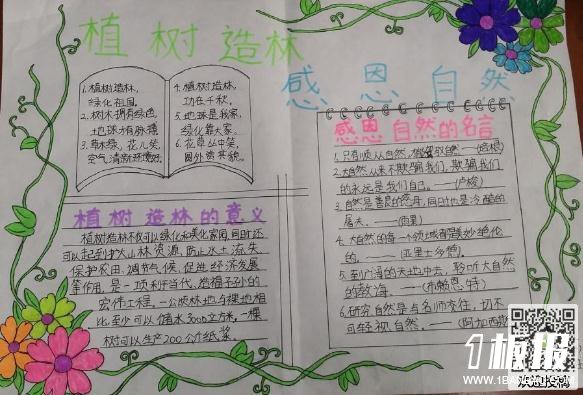 植树造林
感恩自然
1.植树造林,
绿化祖国,
2.树木拥有绿色,
地球才有脉搏
3.草木绿,花儿笑,
空气清新环境好.
4.植树造林,
功在千秋,
5.地球是我家,
绿化靠大家,
6.花草丛中笑,
园外赏其貌.
植树造林的意义
植树造林不仅可以绿化和美化家园,同时还
可以起到扩大山林资源,防止水土流失,
保护农田,调节气候,促进经济发展
等作用,是一项利于当代,造福子孙的
宏伟工程,一公顷林地与裸地相
比至少可以储水3000立方米,一棵
树可以生产200公斤纸浆,
感恩自然的名言
1.只有顺从自然,才能驾驭自然——(培根)
2.大自然从来不欺骗我们,欺骗我们
的永远是我们自己。——(卢梭)
3.自然是善良的慈母,同时也是冷酷的
屠夫。——(雨果)
4.大自然的每一个领域都是美妙绝伦
的.——(亚里士多德)
5.到广博的天地中去,聆听大自然
的教诲.——(布赖恩特)
6.研究自然是与名师交往,切不
可轻视自然.——(阿加西斯)
1板报
WWW.1BANBAO.COM
欢迎投稿